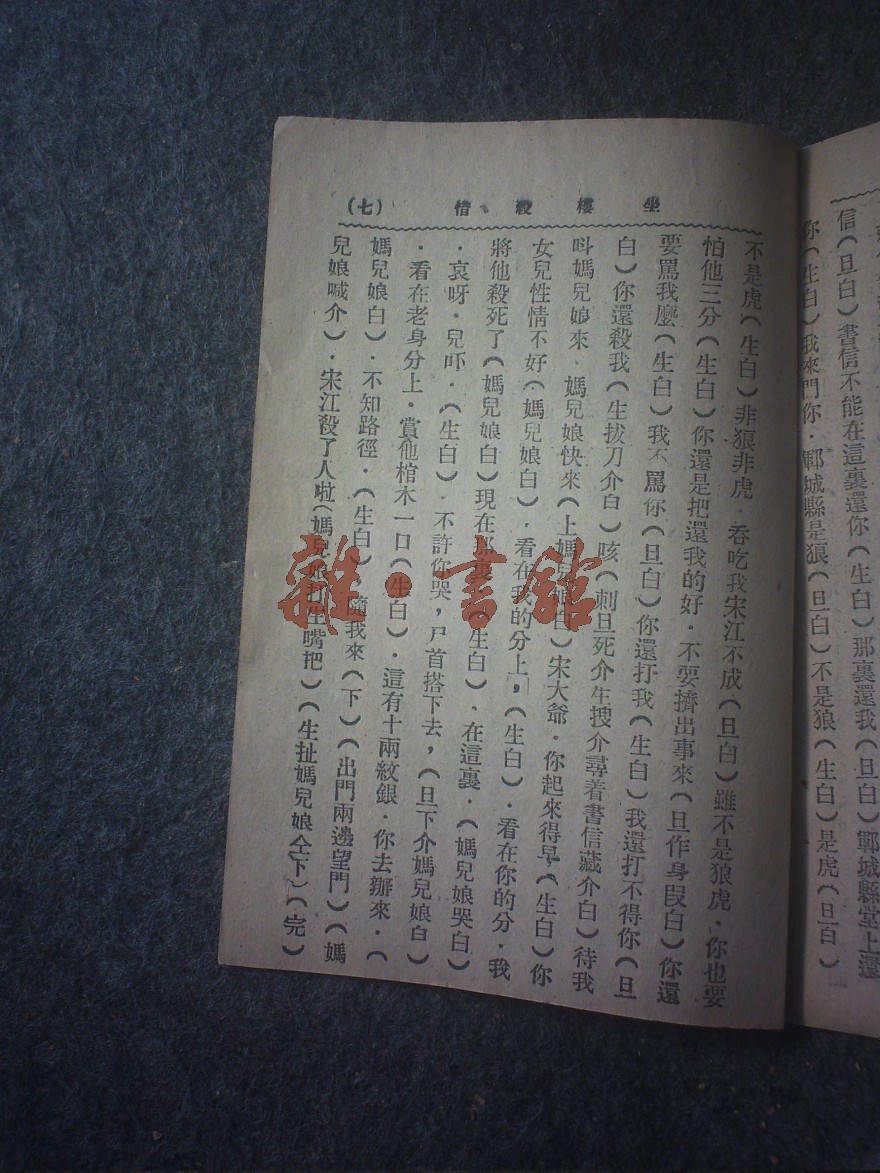 信（旦白）書信不能在這裏還你（生白）那裏還我（旦白）鄆城縣堂上還
你（生白）我來門你．鄆城縣是狼（旦白）不是狼（生白）是虎（旦白）
坐樓殺惜 （七）
不是虎（生白）非狼非虎．吞吃我宋江不成（旦白）雖不是狼虎．你也要
怕他三分（生白）你還是把還我的好．不要擠出事來（旦作身段白）你還
要罵我麼（生白）我不罵你（旦白）你還打我（生白）我還打不得你（旦
白）你還殺我（生拔刀介白）咳（刺旦死介生搜介尋着書信藏介白）待我
呌媽兒娘來．媽兒娘快來（上媽兒娘白）宋大爺．你起來得早（生白）你
女兒性情不好（媽兒娘白）．看在我的分上，（生白）．看在你的分．我
將他殺死了（媽兒娘白）現在那裏（生白）、在這裏．（媽兒娘哭白）
．哀呀．兒吓．（生白）．不許你哭，尸首搭下去，（旦下介媽兒娘白）
．看在老身分上．賞他棺木一口（生白）．這有十兩紋銀．你去辦來．（
媽兒娘白）．不知路徑．（生白）隨我來（下）（出門兩邊望門）（媽
兒娘喊介）．宋江殺了人啦（媽兒娘打生嘴把）（生扯媽兒娘仝下）（完）
雜·書館